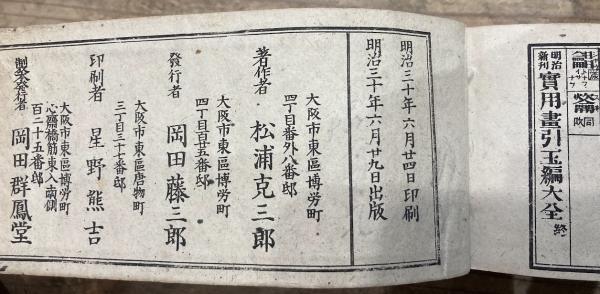 明治新刊
實用畫引玉編大全 終
明治三十年六月廿四日印刷
明治三十年六月廿九日出版
大阪市東區博労町
四丁目番外八番邸
著作者 松浦克三郎
大阪市東區博労町
四丁目百廿五番邸
發行者 岡田藤三郎
大阪市東區唐物町
三丁目三十番邸
印刷者 星野熊吉
大阪市東區博労町
心齋橋筋東入南側
百二十五番邸
製本發行者 岡田群鳳堂